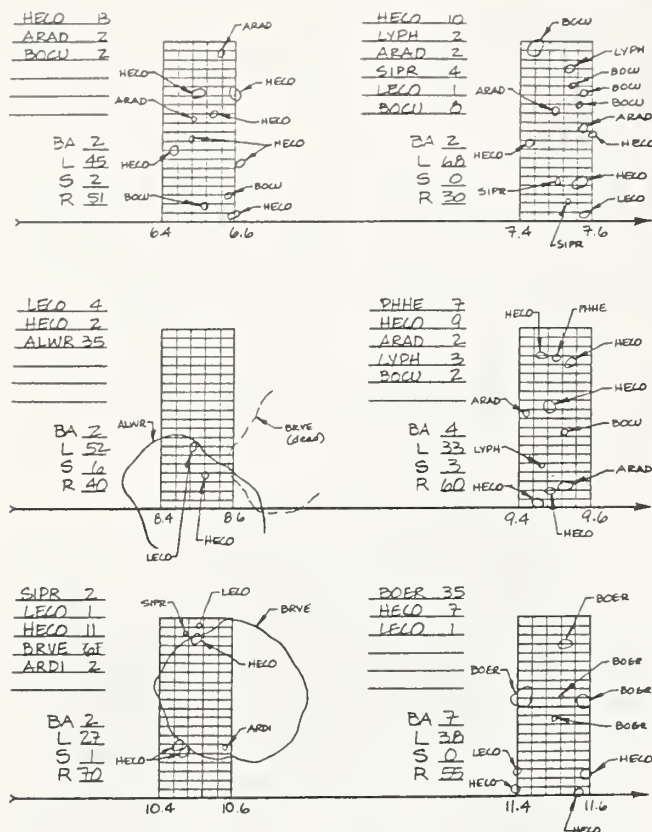 HECO 13
ARAD 2
BOCU 2
BA 2
L 45
S 2
R 51
ARAD
HECO
HECO
ARAD
HECO
HECO
HECO
BOCU
BOCU
HECO
6.4 6.6
HECO 10
LYPH 2
ARAD 2
SIPR 4
LECO 1
BOCU 8
BA 2
L 68
S 0
R 30
BOCU
LYPH
BOCU
BOCU
ARAD
BOCU
ARAD
HECO
HECO
SIPR
HECO
LECO
SIPR
7.4 7.6
LECO 4
HECO 2
ALWR 35
BA 2
L 52
S 6
R 40
ALWR
BRVE
(dead)
8.4 8.6
LECO
HECO
PHHE 7
HECO 9
ARAD 2
LYPH 3
BOCU 2
BA 4
L 33
S 3
R 60
HECO
PHHE
HECO
HECO
ARAD
BOCU
LYPH
ARAD
HECO
9.4 9.6
HECO
SIPR 2
LECO 1
HECO 11
BRVE
ARDI 2
BA 2
L 27
S 1
R 70
LECO
SIPR
BRVE
HECO
ARDI
HECO
10.4 10.6
BOER 35
HECO 7
LECO 1
BA 7
L 38
S 0
R 55
BOER
BOER
BOER
BOER
BOER
LECO
HECO
HECO
11.4 11.6
HECO